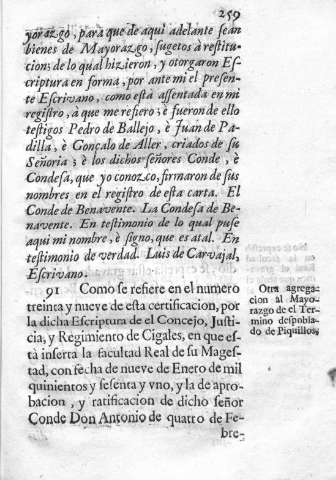 259
yorazgo, para que de aqui adelante sean
bienes de Mayorazgo, sugetos à restitu-
cion; de lo qual hizieron, y otorgaron Es-
criptura en forma, por ante mi el presen-
te Escrivano, como està assentada en mi
registro, à que me refiero; è fueron de ello
testigos Pedro de Ballejo, è Juan de Pa-
dilla, è Gonçalo de Aller, criados de su
Señoria; è los dichos señores Conde, è
Condesa, que yo conozco, firmaron de sus
nombres en el registro de esta carta. El
Conde de Benavente. La Condesa de Be-
navente. En testimonio de lo qual puse
aqui mi nombre, è signo, que es atal. En
testimonio de verdad. Luis de Carvajal,
Escrivano.
91 Como se refiere en el numero
treinta y nueve de esta certificacion, por
la dicha Escriptura de el Concejo, Justi-
cia, y Regimiento de Cigales, en que es-
tà inserta la facultad Real de su Mages-
tad, con fecha de nueve de Enero de mil
quinientos y sesenta y vno, y la de apro-
bacion, y ratificacion de dicho señor
Conde Don Antonio de quatro de Fe-
bre-
Otra agrega-
cion al Mayo-
razgo de el Ter-
mino despobla-
do de Piquillos.